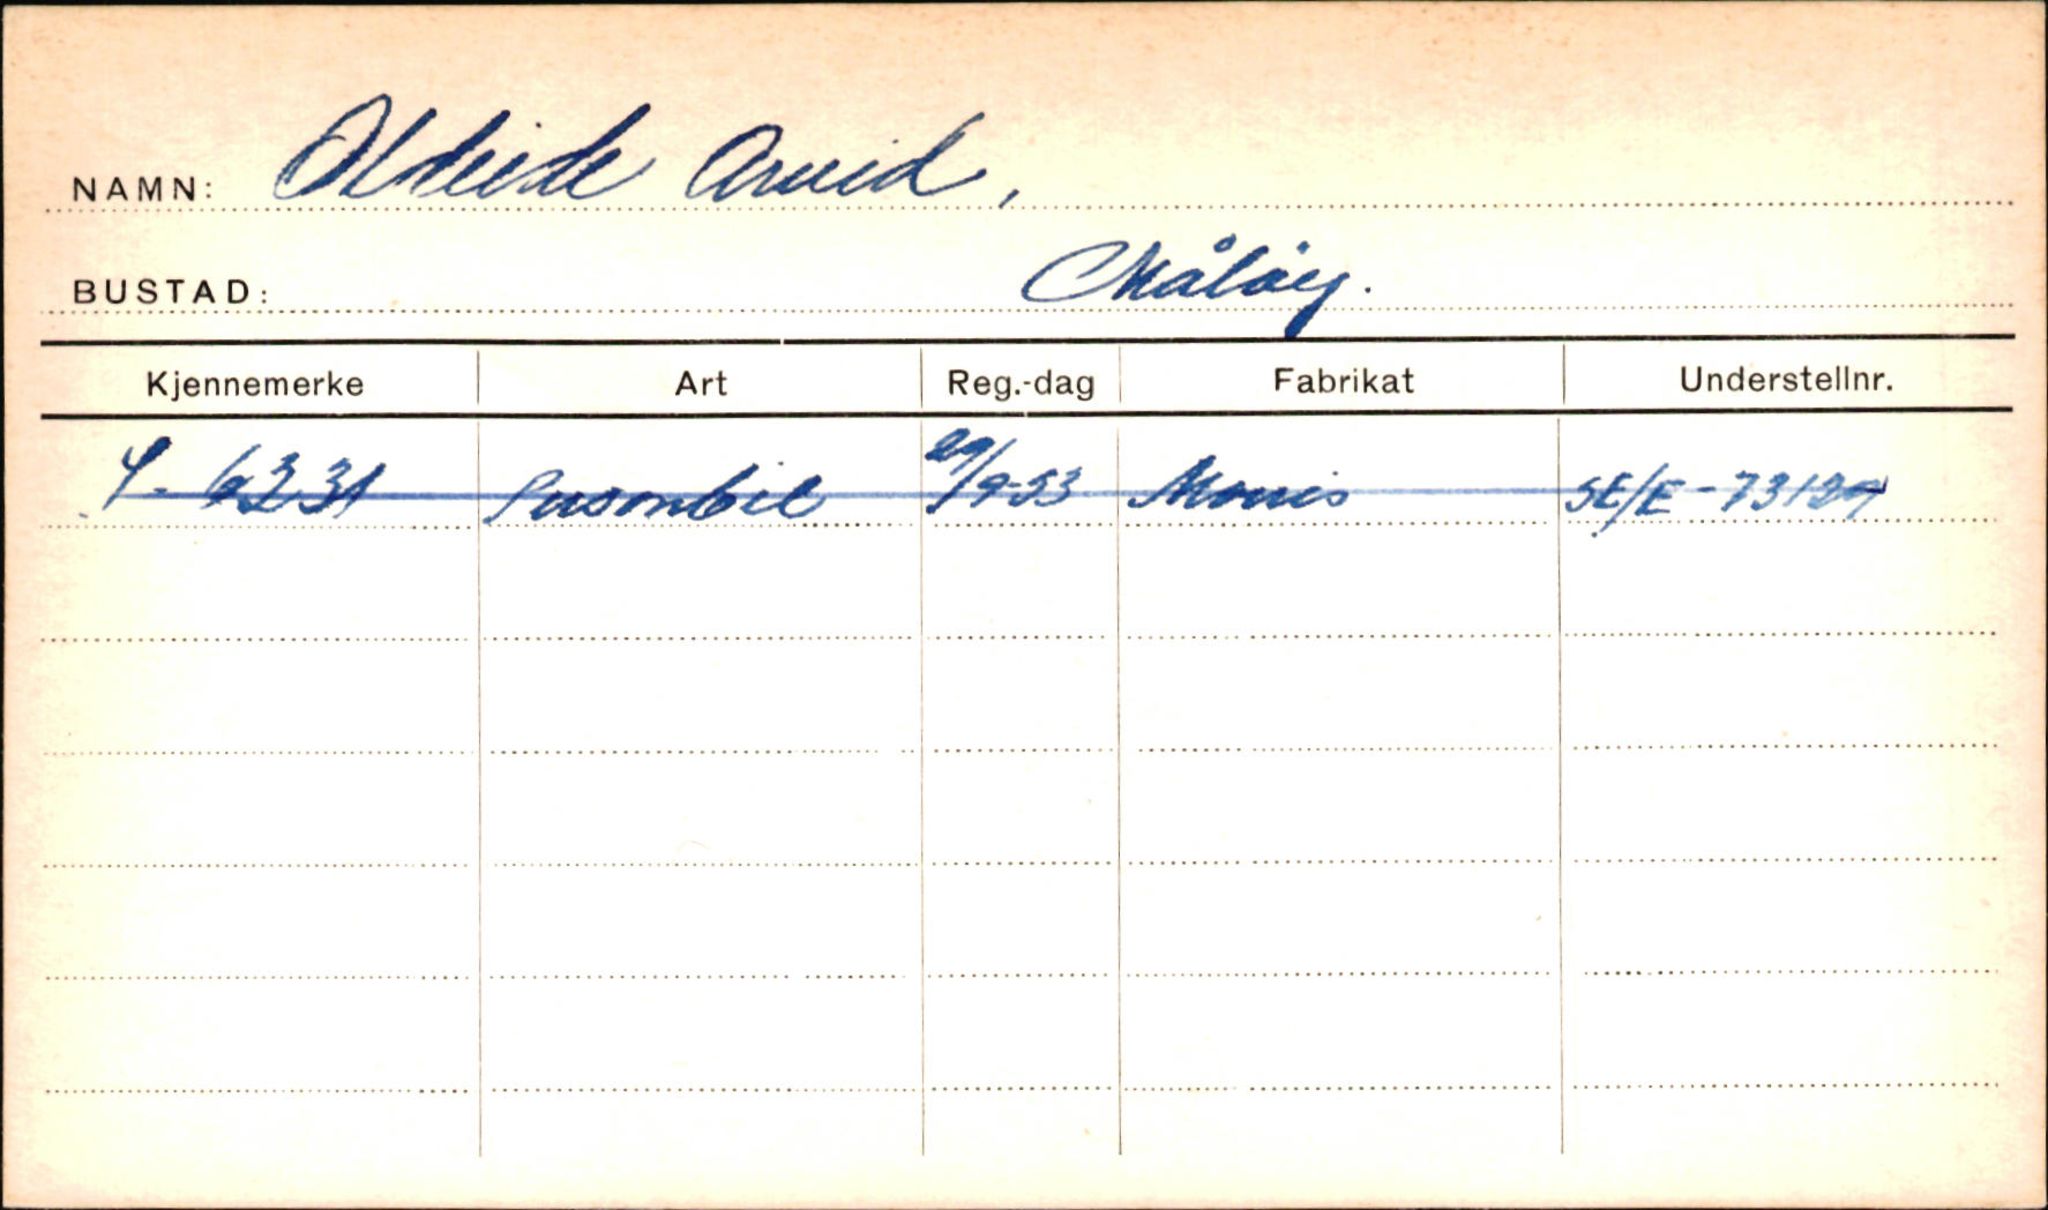 NAMN: Oldeide Arvid,
BUSTAD: Måløy.
Kjennemerke Art Reg.-dag Fabrikat Understellnr.
S-6231 Personbil 29/9-53 Morris SE/E-73129